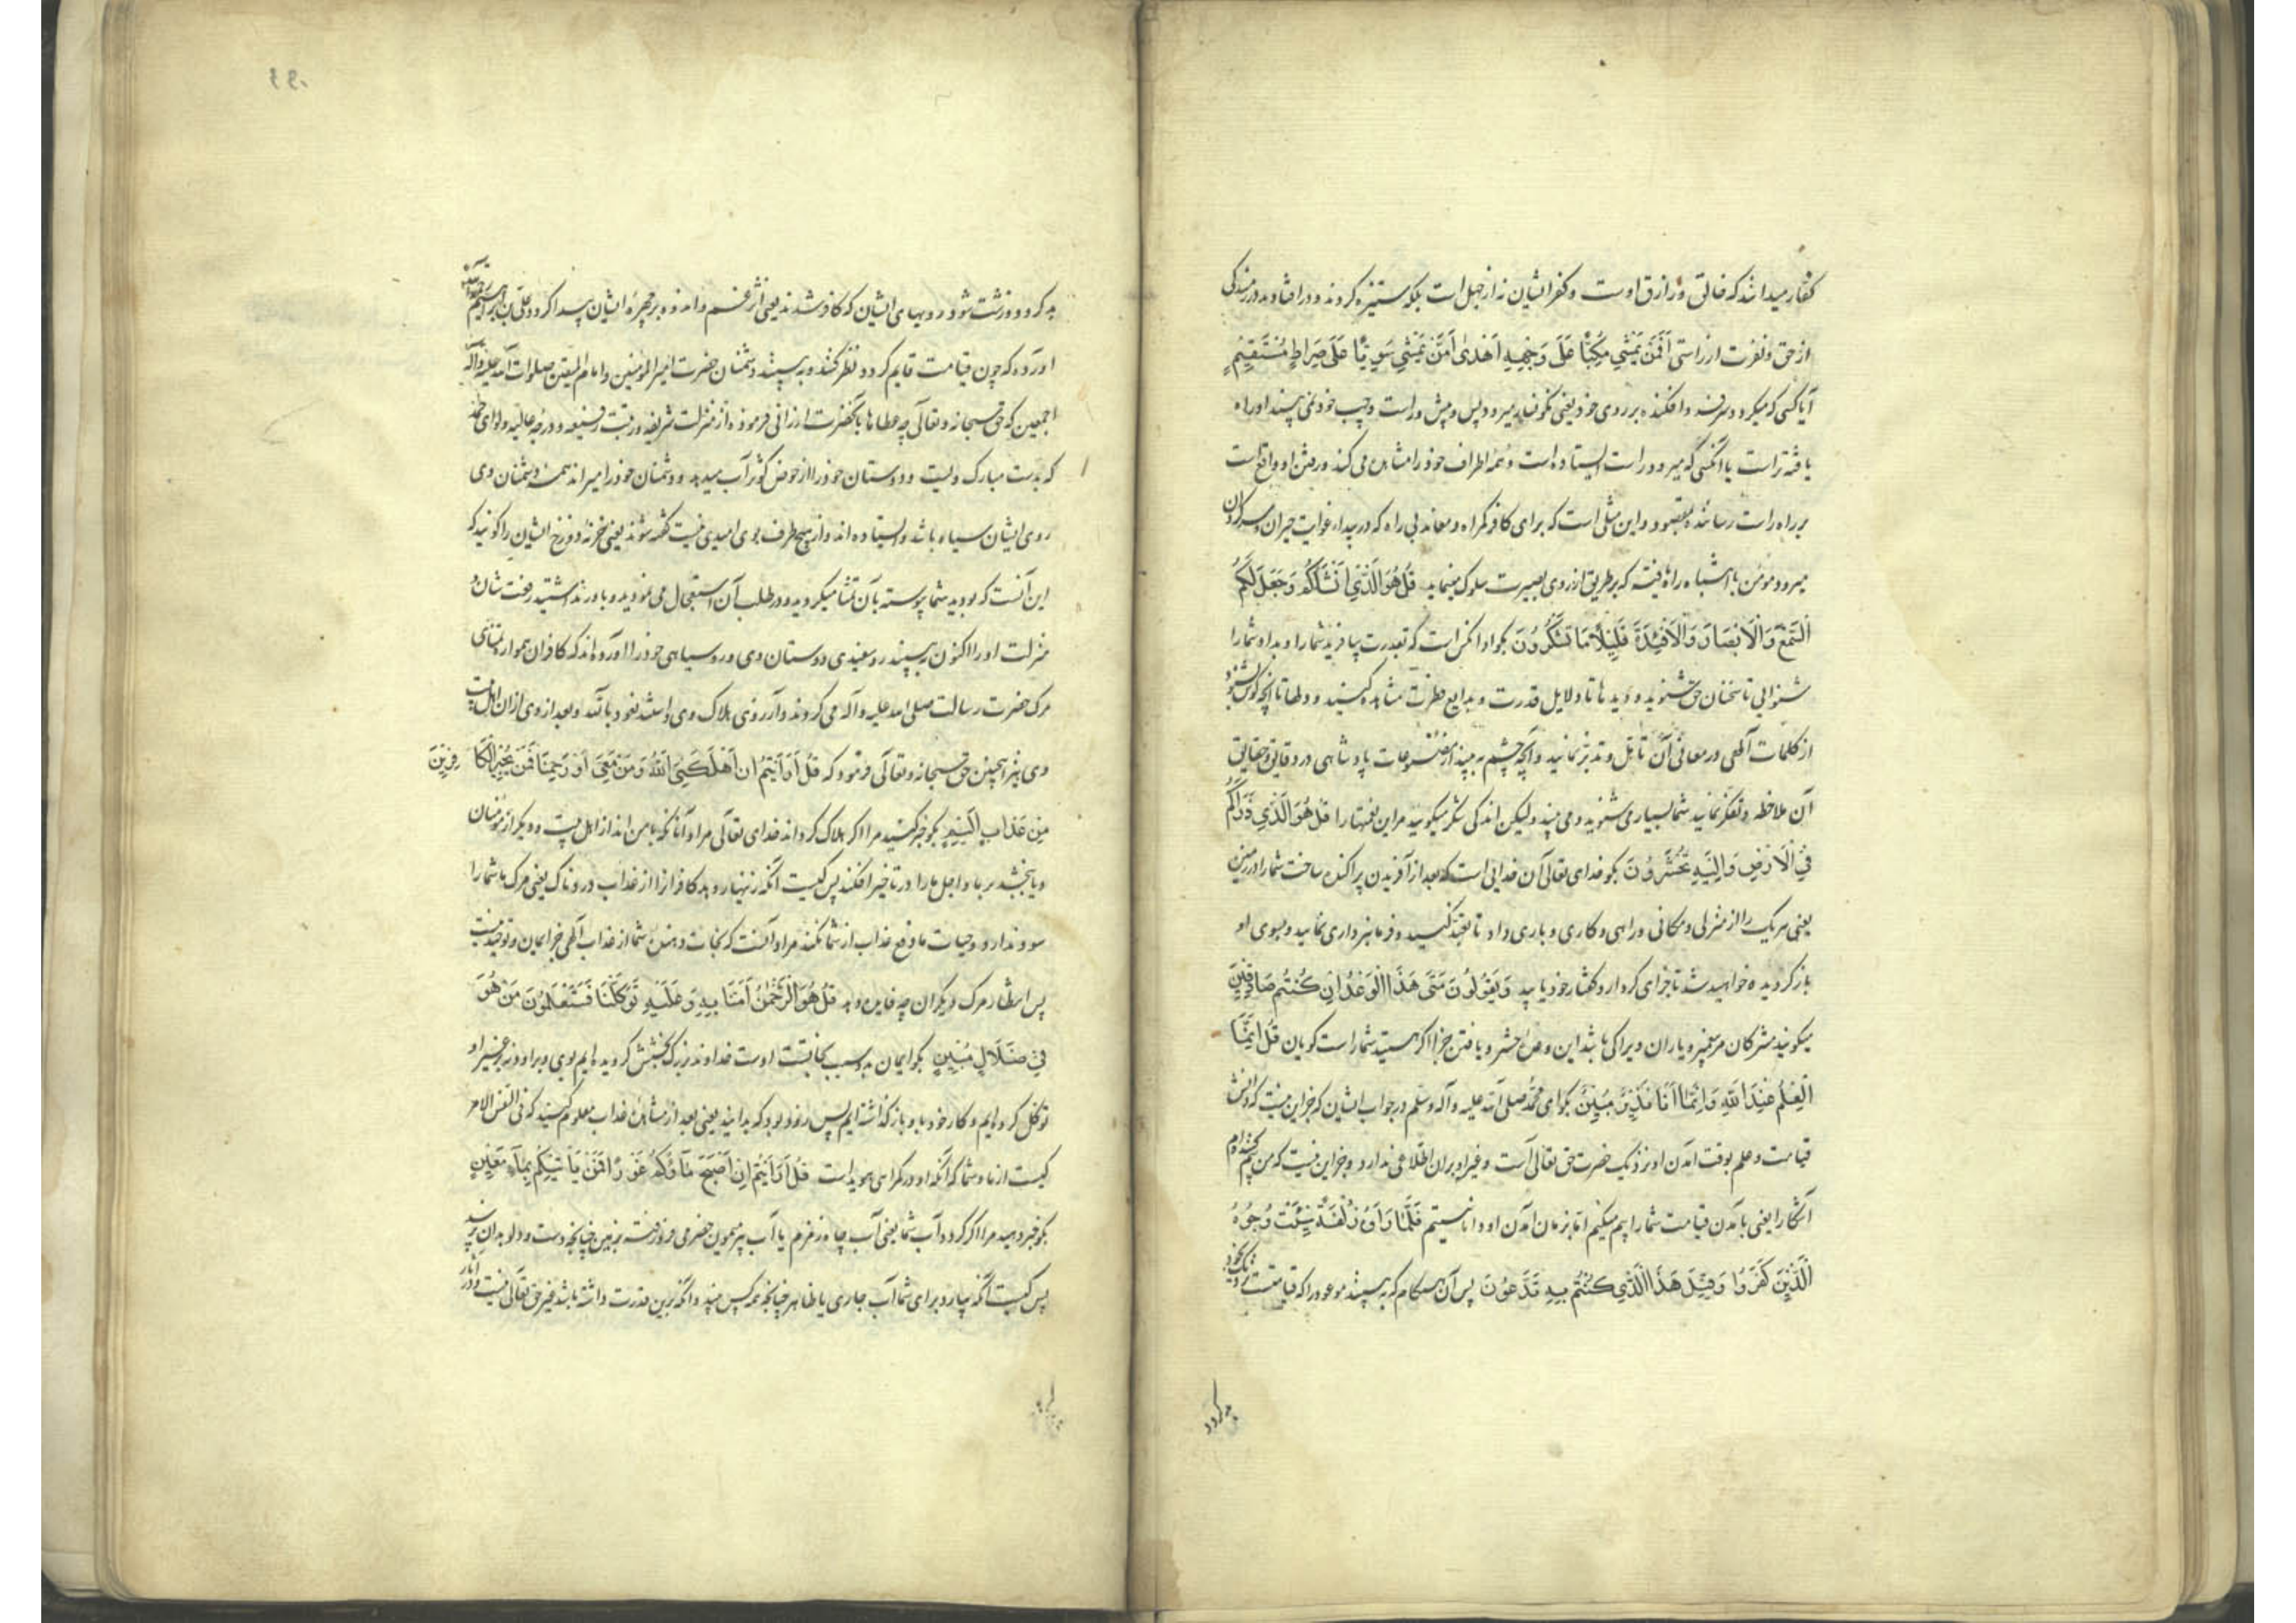 کفار میدانند که خالق و رازق اوست و کفر ایشان نه از جهل است بلکه ستیزه کردند و در افتاده در رمندگی
از حق و نفرت از راستی أَفَمَنْ يَمْشِي مُكِبًّا عَلَى وَجْهِهِ أَهْدَى أَمَّنْ يَمْشِي سَوِيًّا عَلَى صِرَاطٍ مُسْتَقِيمٍ
آیا کسی که میرود سرفرو افکنده بر روی خود یعنی نگونسار میرود و پس و پیش و راست و چپ خود نمی بیند او راه
یافته تر است یا آنکسی که میرود راست ایستاده است و همه اطراف خود را مشاهده می کند و پیش او واقع است
بر راه راست رساننده بمقصود و این مثلی است که برای کافر گمراه و معاند بی راه که در بیدای غوایت حیران و سرگردان
میرود و مومن با اشتباه راه یافته که بر طریق از روی بصیرت سلوک مینماید قُلْ هُوَ الَّذِي أَنْشَأَكُمْ وَجَعَلَ لَكُمُ
السَّمْعَ وَالْأَبْصَارَ وَالْأَفْئِدَةَ قَلِيلًا مَا تَشْكُرُونَ بگو او آنکس است که بقدرت بیافرید شما را و بداد شما را
شنوایی تا سخنان حق بشنوید و دیدها تا دلایل قدرت و بدایع فطرت مشاهده کنید و دلها تا آنچه گوش بشنود
از کلمات آلهی در معانی آن تامل و تدبر نمایید و آنچه چشم به بیند از مصنوعات پادشاهی در دقایق و حقایق
آن ملاحظه و تفکر نمایید شما بسیاری شنوید و می بینید ولیکن اندکی شکر میگویید مر این نعمتها را قُلْ هُوَ الَّذِي ذَرَأَكُمْ
فِي الْأَرْضِ وَإِلَيْهِ تُحْشَرُونَ بگو خدای تعالی آن خدایی است که بعد از آفریدن پراکنده ساخت شما را در زمین
یعنی هر یک را از منزلی و مکانی و راهی و کاری و باری داد تا تعبد کنید و فرمانبرداری نمایید و بسوی او
بازگردیده خواهید شد تا جزای کردار و گفتار خود یابید وَيَقُولُونَ مَتَى هَذَا الْوَعْدُ إِنْ كُنْتُمْ صَادِقِينَ
میگویند مشرکان مر پیغمبر و یاران ویرا کی باشد این وعده حشر و یافتن جزا اگر هستید شما راست گویان قُلْ إِنَّمَا
الْعِلْمُ عِنْدَ اللَّهِ وَإِنَّمَا أَنَا نَذِيرٌ مُبِينٌ بگو ای محمد صلی الله علیه و آله وسلم در جواب ایشان که جز این نیست که دانش
قیامت و علم بوقت آمدن او نزدیک حضرت حق تعالی است و غیر او بر آن اطلاعی ندارد و جز این نیست که من بیم کننده‌ام
آشکارا یعنی بآمدن قیامت شما را بیم میکنم اما بزمان آمدن او دانا نیستم فَلَمَّا رَأَوْهُ زُلْفَةً سِيئَتْ وُجُوهُ
الَّذِينَ كَفَرُوا وَقِيلَ هَذَا الَّذِي كُنْتُمْ بِهِ تَدَّعُونَ پس آن هنگام که به بینند موعود را که قیامتست نزدیک بخود
بد گردد
بد گردد و زشت شود رویهای ایشان که کافر شدند یعنی اثر غم و اندوه بر چهره ایشان پیدا گردد و علی بن ابراهیم
آورده که چون قیامت قایم گردد نظر کنند و به بینند دشمنان حضرت امیر المؤمنین و امام المتقین صلوات الله علیه و آله
اجمعین که حق سبحانه و تعالی چه عطاها بآنحضرت ارزانی فرموده از منزلت شریفه و رتبت رفیعه و درجه عالیه و لوای حمد
که بدست مبارک ولیست و دوستان خود را از حوض کوثر آب میدهد و دشمنان خود را میراند همه دشمنان وی
روی ایشان سیاه باشد و ایستاده اند و از هیچ طرف بوی امیدی نیست گفته شوند یعنی خزنه دوزخ ایشان را گویند که
این آنست که بودید شما پیوسته بآن تمنا میکردید و در طلب آن استعجال می نمودید و باور نداشتید رفعت شان و
منزلت او را اکنون ببینید رو سفیدی دوستان وی و روسیاهی خود را آورده‌اند که کافران هموار تمنای
مرگ حضرت رسالت صلی الله علیه و آله می کردند و آرزوی هلاک وی داشتند نعوذ بالله و بعد از وی از آن اهل بیت
وی نیز اینچنین حق سبحانه و تعالی فرمود که قُلْ أَرَأَيْتُمْ إِنْ أَهْلَكَنِيَ اللَّهُ وَمَنْ مَعِيَ أَوْ رَحِمَنَا فَمَنْ يُجِيرُ الْكَافِرِينَ
مِنْ عَذَابٍ أَلِيمٍ بگو خبر کنید مرا اگر هلاک گرداند خدای تعالی مرا و آنانکه با من اند از اهل بیت و دیگر از مؤمنان
و یا ببخشد بر ما و اجل ما را در تاخیر افکند پس کیست آنکه زینهار دهد کافرانرا از عذاب دردناک یعنی مرگ ما شما را
سود ندارد و حیات ما دفع عذاب از شما نکند مراد آنست که نجات دهنده شما از عذاب آلهی جز ایمان و توحید نیست
پس انتظار مرگ دیگران چه فایده دهد قُلْ هُوَ الرَّحْمَنُ آمَنَّا بِهِ وَعَلَيْهِ تَوَكَّلْنَا فَسَتَعْلَمُونَ مَنْ هُوَ
فِي ضَلَالٍ مُبِينٍ بگو ایمان بدو سبب نجاتست اوست خداوند بزرگ بخشش گرویده ایم بوی و بر او نه بر غیر او
توکل کرده ایم و کار خود باو بازگذاشته ایم پس زود بود که بدانید یعنی بعد از مشاهده عذاب معلوم کنید که فی النفس الامر
کیست از ما و شما که آنکه او در گمراهی هویداست قُلْ أَرَأَيْتُمْ إِنْ أَصْبَحَ مَاؤُكُمْ غَوْرًا فَمَنْ يَأْتِيكُمْ بِمَاءٍ مَعِينٍ
بگو خبر دهید مرا اگر گردد آب شما یعنی آب چاه زمزم یا آب بیر میمون حضرمی فرو رفته بزمین چنانچه دست و دلو بدان نرسد
پس کیست آنکه بیارد برای شما آب جاری یا ظاهر چنانچه همه کس بیند و آنکه برین قدرت داشته باشد غیر حق تعالی نیست و در آثار